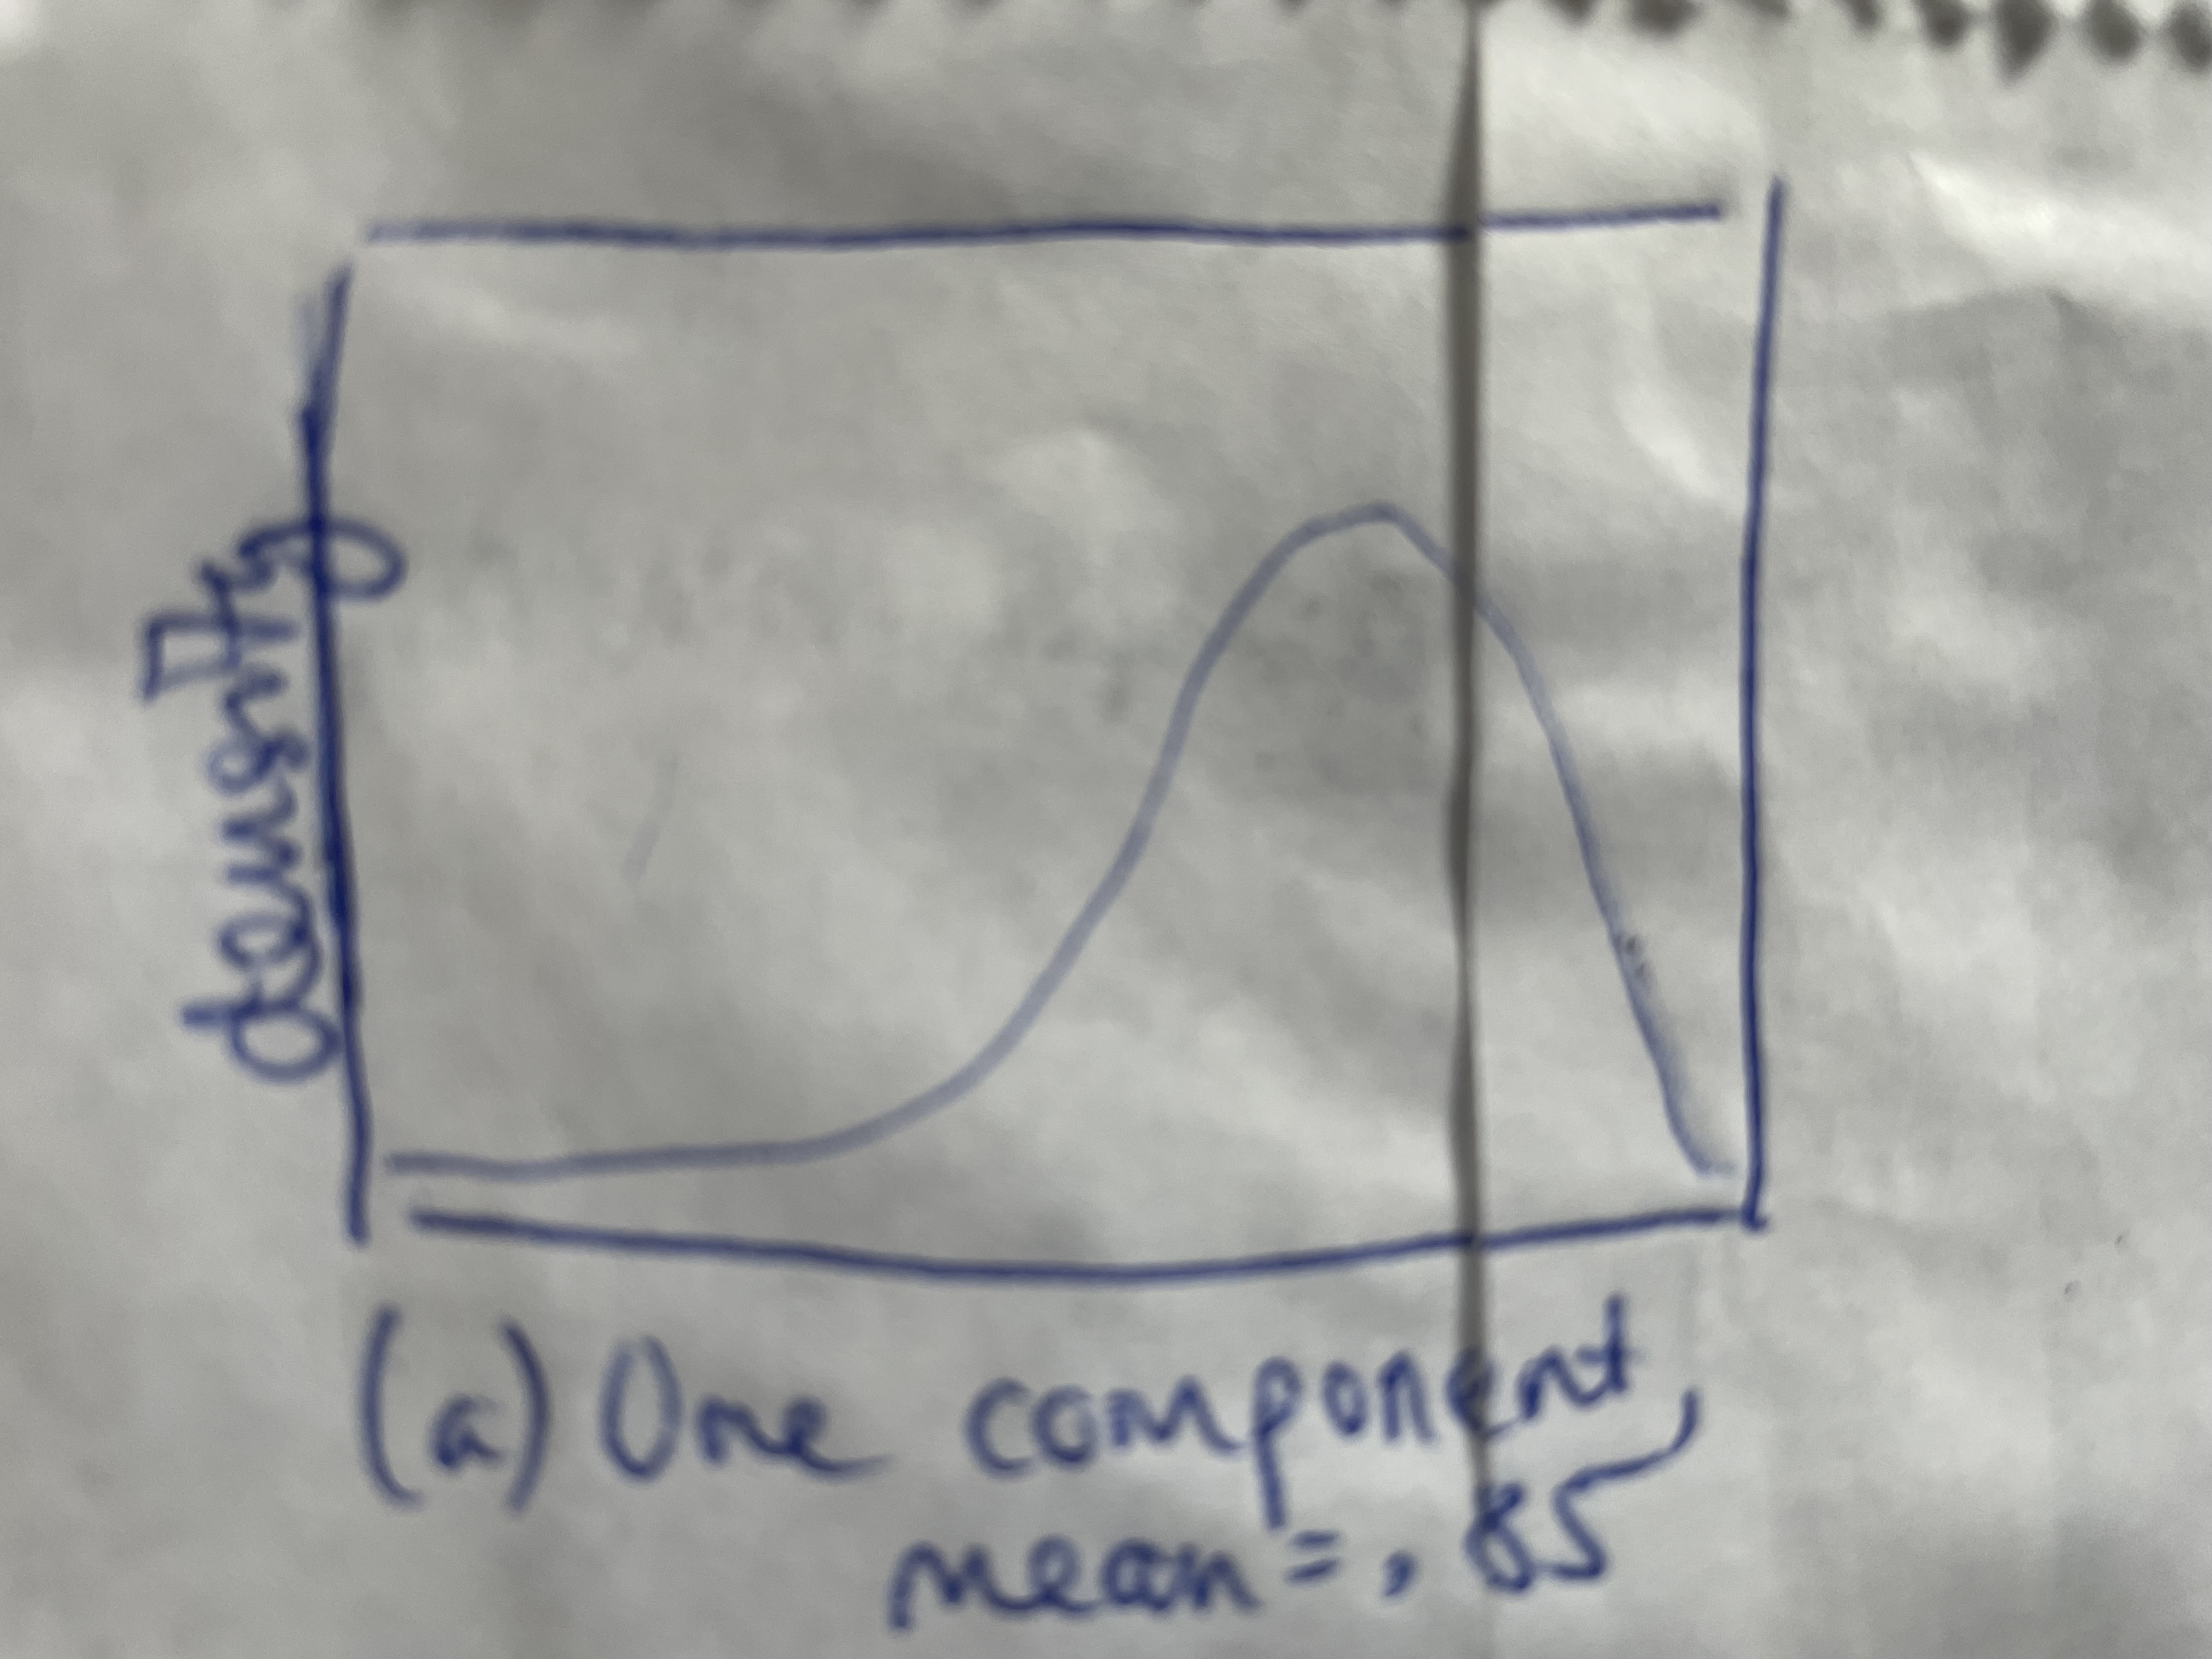 density
(a) One component
mean = .85